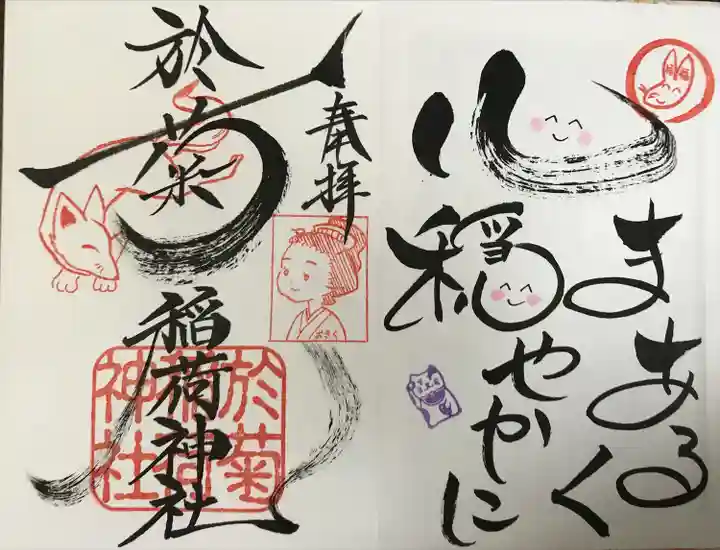 心
まあるく
穏やかに
奉拝
於菊
稲荷神社
おきく
於菊
稲荷
神社